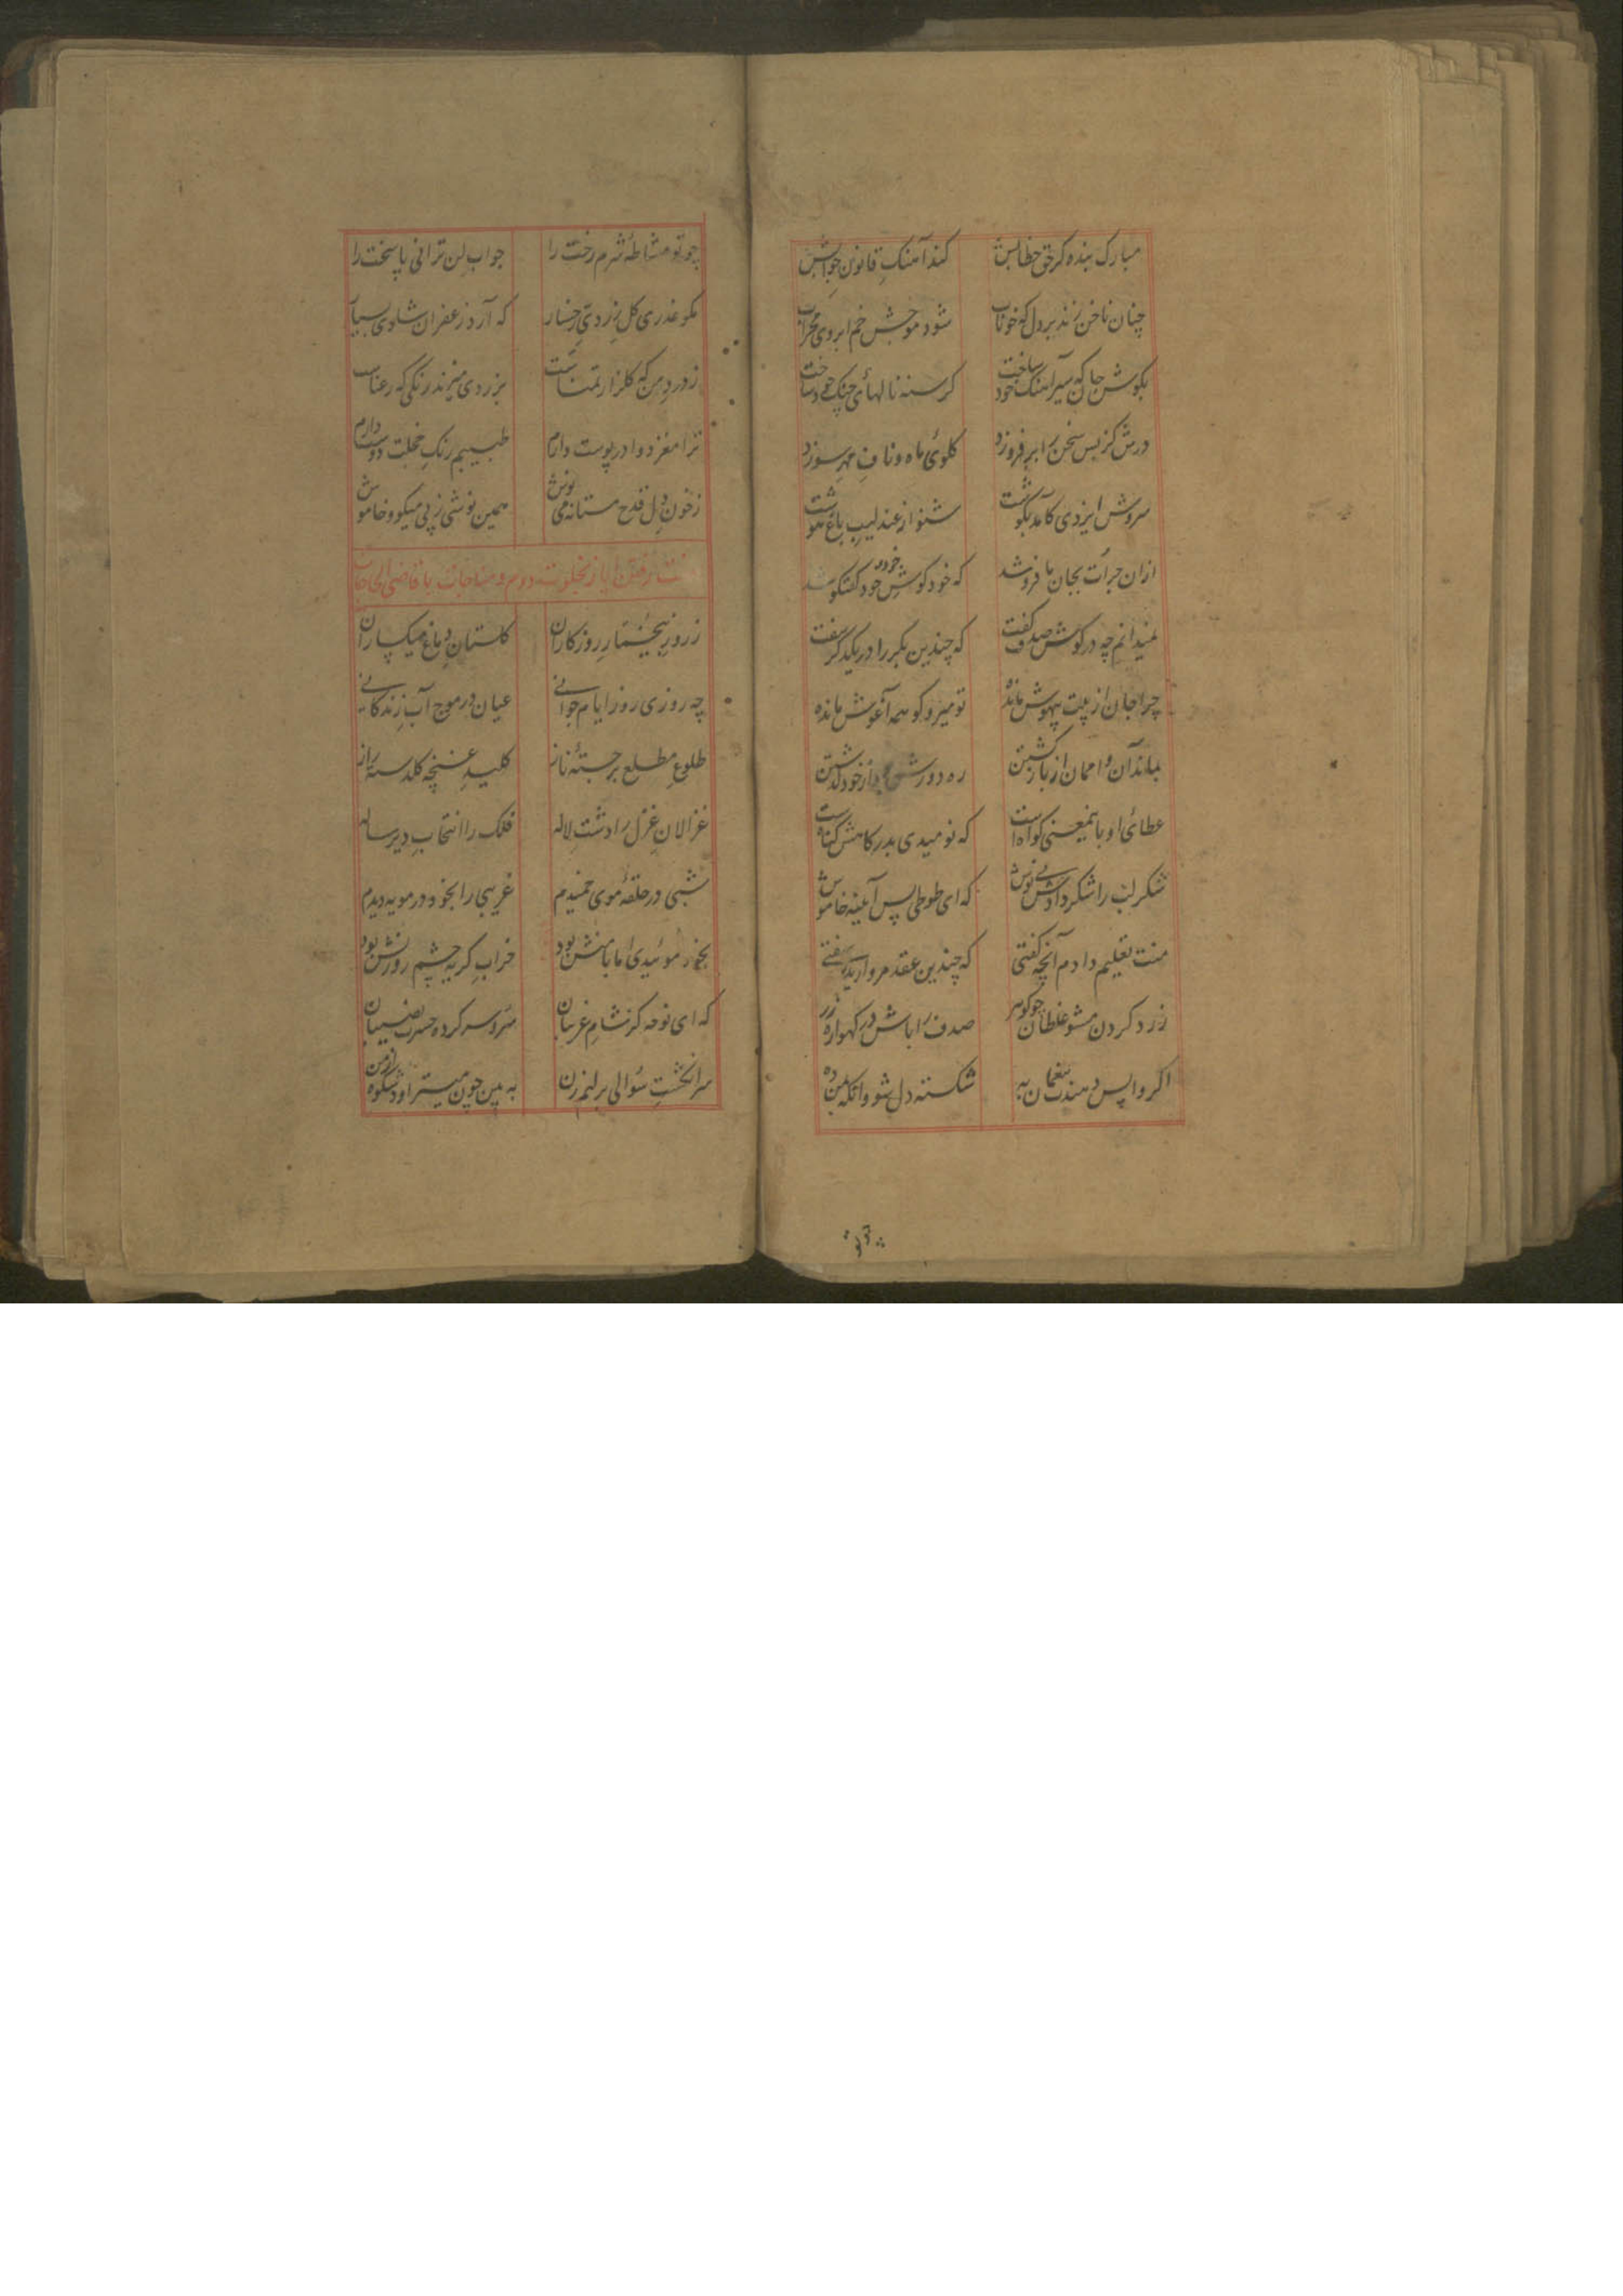 مبارک بنده کز حق خطابش کند آهنگ قانون جوابش
چنان ناخن زند بر دل که خوناب شود موجش خم ابروی محراب
بگوش جا که سیر آهنگ خود ساخت گرسنه نالهای چنگ خود ساخت
درش کز بس سخن را بر فروزد گلوی ماه و ناف مهر سوزد
سروش ایزدی کامد بگوشت شنو از عندلیب باغ هوشت
ازان جرأت بجان ما فرو شد که خود گوش خود گفتگو شد
نمیدانم چه در گوش صدف گفت که چندین بکر را در یکدگر سفت
چرا جان از پیت بیهوش مانده تو میروگو همه آغوش مانده
بماند آن و امان از بازگشتن ره دورش از خود گذشتن
عطائی او باین معنی گواهست که نومیدی بدرگاهش گناهست
شکر لب را شکر دادش نوش که ای طوطی پس آیینه خاموش
منت تعلیم دادم آنچه گفتی که چندین عقد مروارید سفتی
زرد کردن مشو غلطان چو گوهر صدف را باش در گهواره زر
اگر واپس دهندت به شکسته دل شو وانگه بمن ده
چو تو مشاطهٔ شرم رخت را جواب لن ترانی پاسخت را
مگو عذری گل زردی رخسار که آرد زعفران شادی بسیار
ز درد من که گلزار تمناست بزردی میزند رنگی که رعناست
ترا مغز دوا در پوست دارم طبیبم رنگ خجلت دوست دارم
ز خون دل قدح مستانه می نوش همین نوشی زپی میگو و خاموش
رفتن ایاز بخلوت دوم و مناجات با قاضی الحاجات
ز روز روزگاران گلستان دماغ میگساران
چه روزی روز ایام جوانی عیان در موج آب زندگانی
طلوع مطلع برجستهٔ ناز کلید غنچه گلدستهٔ راز
غزالان غزل را دشت لاله فلک را انتخاب دیر ساله
شبی در حلقهٔ موی خمیدم غریبی را بخود در مویه دیدم
بخود موئیدی اما با منش بود خراب گریه چشم روزنش بود
که ای نوحه گر شام غریبان سر و سر کرده حسرت نصیبان
سر انگشت سؤالی بر لبم زن به بین چون میتراود شکوه از من